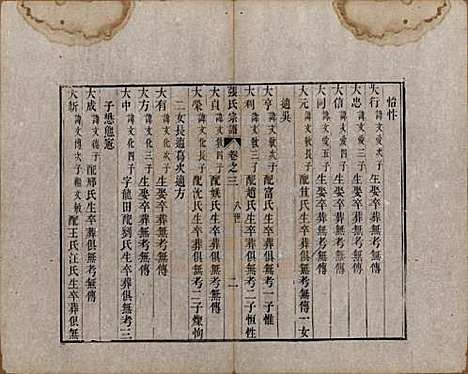 怡性
大行 諱文愛次子 生娶卒葬無考無傳
大忠 諱文愛三子 生娶卒葬無考無傳
大信 諱文愛四子 生娶卒葬無考無傳
大同 諱文愛五子 生娶卒葬無考無傳
大元 諱文敏長子 配 氏生卒葬俱無考無傳一女
適吳
大亨 諱文敏次子 配富氏生卒葬俱無考一子惟
大利 諱文敏三子 配趙氏生卒葬俱無考二子恆性
張氏宗譜 卷之三 八世 二
大貞 諱文敏四子 配姚氏生卒葬俱無考無傳
大榮 諱文化長子 配 氏生卒葬俱無考二子 恂
二女長適葛次適方
大有 諱文化次子 生娶卒葬無考無傳
大方 諱文化三子 生娶卒葬無考無傳
大中 諱文化四子 字龍田配劉氏生卒葬俱無考三
子 恩
大成 諱文傳長子 配邢氏生卒葬俱無考無傳
大新 諱文傳次子繼文敏 配王氏江氏生卒葬俱無